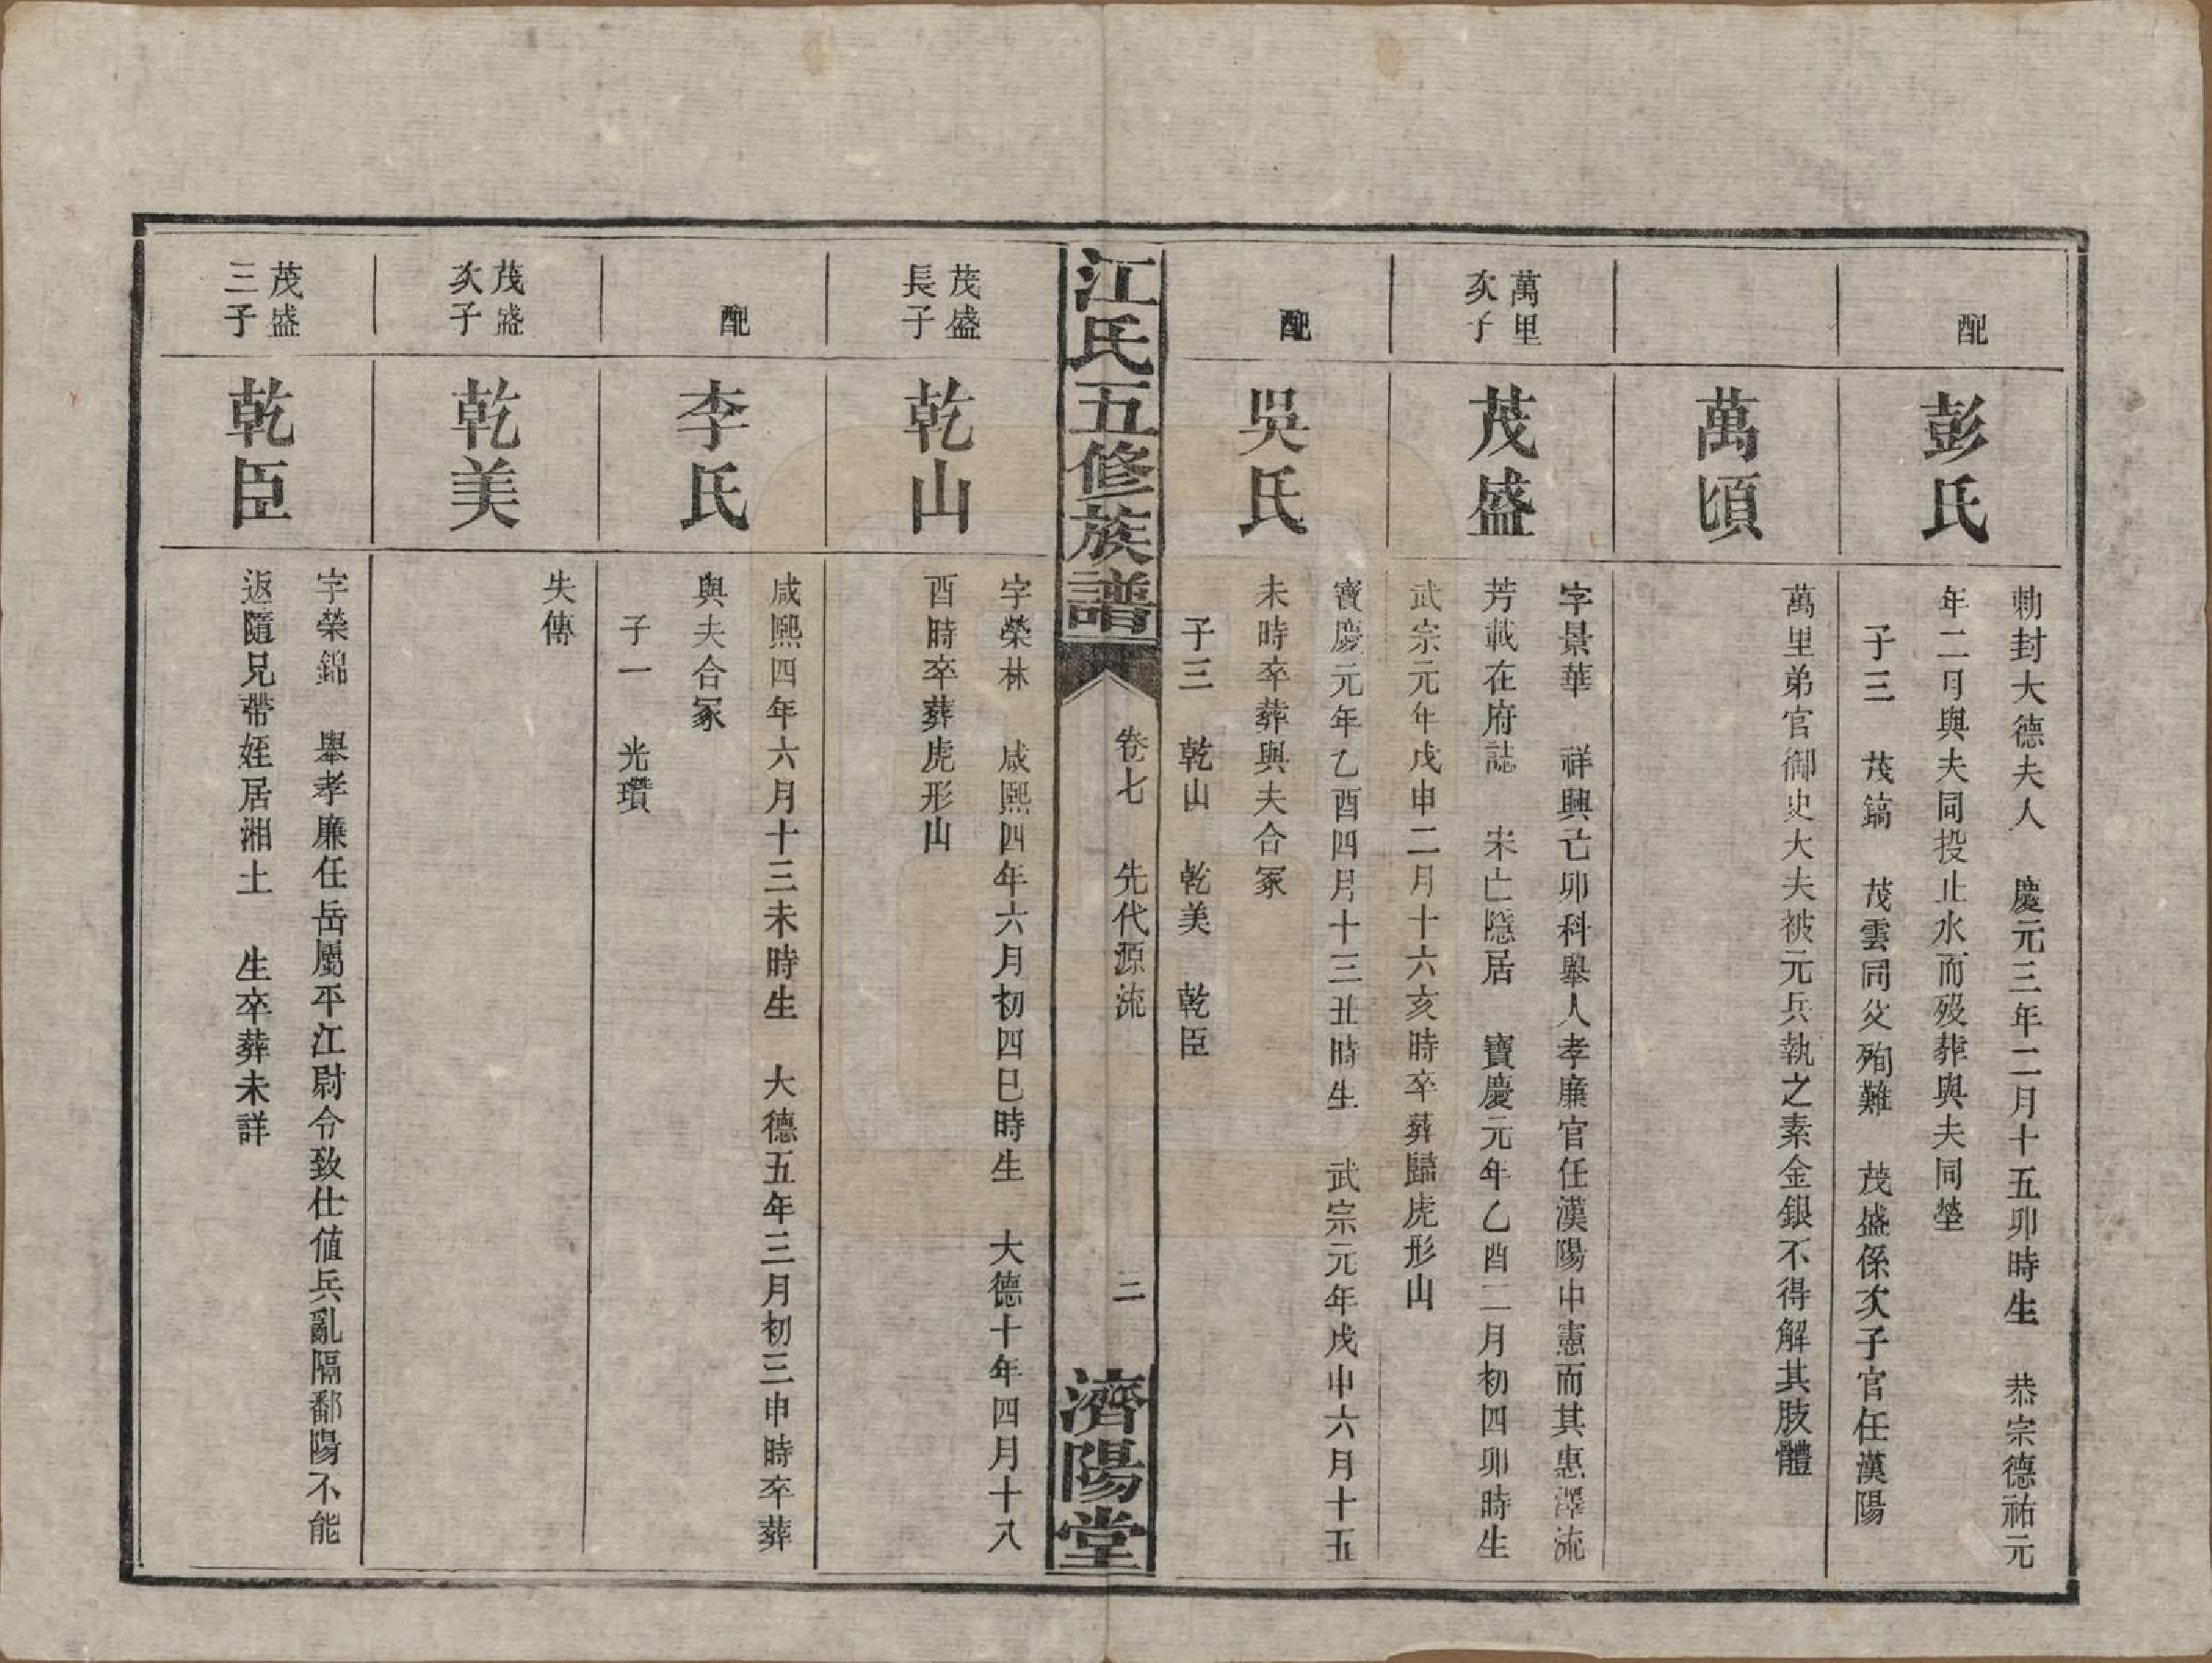 配
彭氏
勅封大德夫人　慶元三年二月十五卯時生　恭宗德祐元
年二月與夫同投止水而歿葬與夫同塋
子三　茂鎬　茂雲同父殉難　茂盛係次子官任漢陽
萬頃
萬里弟官御史大夫被元兵執之素金銀不得解其肢體
萬里
次子
茂盛
字景華　祥興己卯科舉人孝廉官任漢陽中憲而其惠澤流
芳載在府誌　宋亡隱居　寶慶元年乙酉二月初四卯時生
武宗元年戊申二月十六亥時卒葬歸虎形山
配
吳氏
寶慶元年乙酉四月十三丑時生　武宗元年戊申六月十五
未時卒葬與夫合冢
子三　乾山　乾美　乾臣
江氏五修族譜
卷七　先代源流
二
濟陽堂
茂盛
長子
乾山
字榮林　咸熙四年六月初四巳時生　大德十年四月十八
酉時卒葬虎形山
配
李氏
咸熙四年六月十三未時生　大德五年三月初三申時卒葬
與夫合冢
子一　光瓚
茂盛
次子
乾美
失傳
茂盛
三子
乾臣
字榮錦　舉孝廉任岳屬平江尉令致仕值兵亂隔鄱陽不能
返隨兄帶姪居湘土　生卒葬未詳